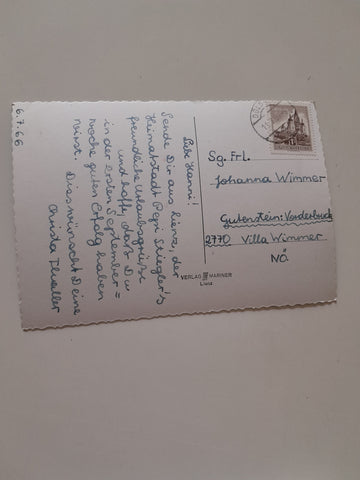 6.7.66
Liebe Hanni!
Sende Dir aus Lienz, der
Heimatstadt Pepi Stiegler's
freundliche Urlaubsgrüsse
und hoffe, dass Du
in der ersten September=
woche guten Erfolg haben
wirst. Dies wünscht Deine
Christa
Sg. Frl.
Johanna Wimmer
Gutenstein: Vorderbruck
2770 Villa Wimmer
NÖ
VERLAG MARINER
Lienz